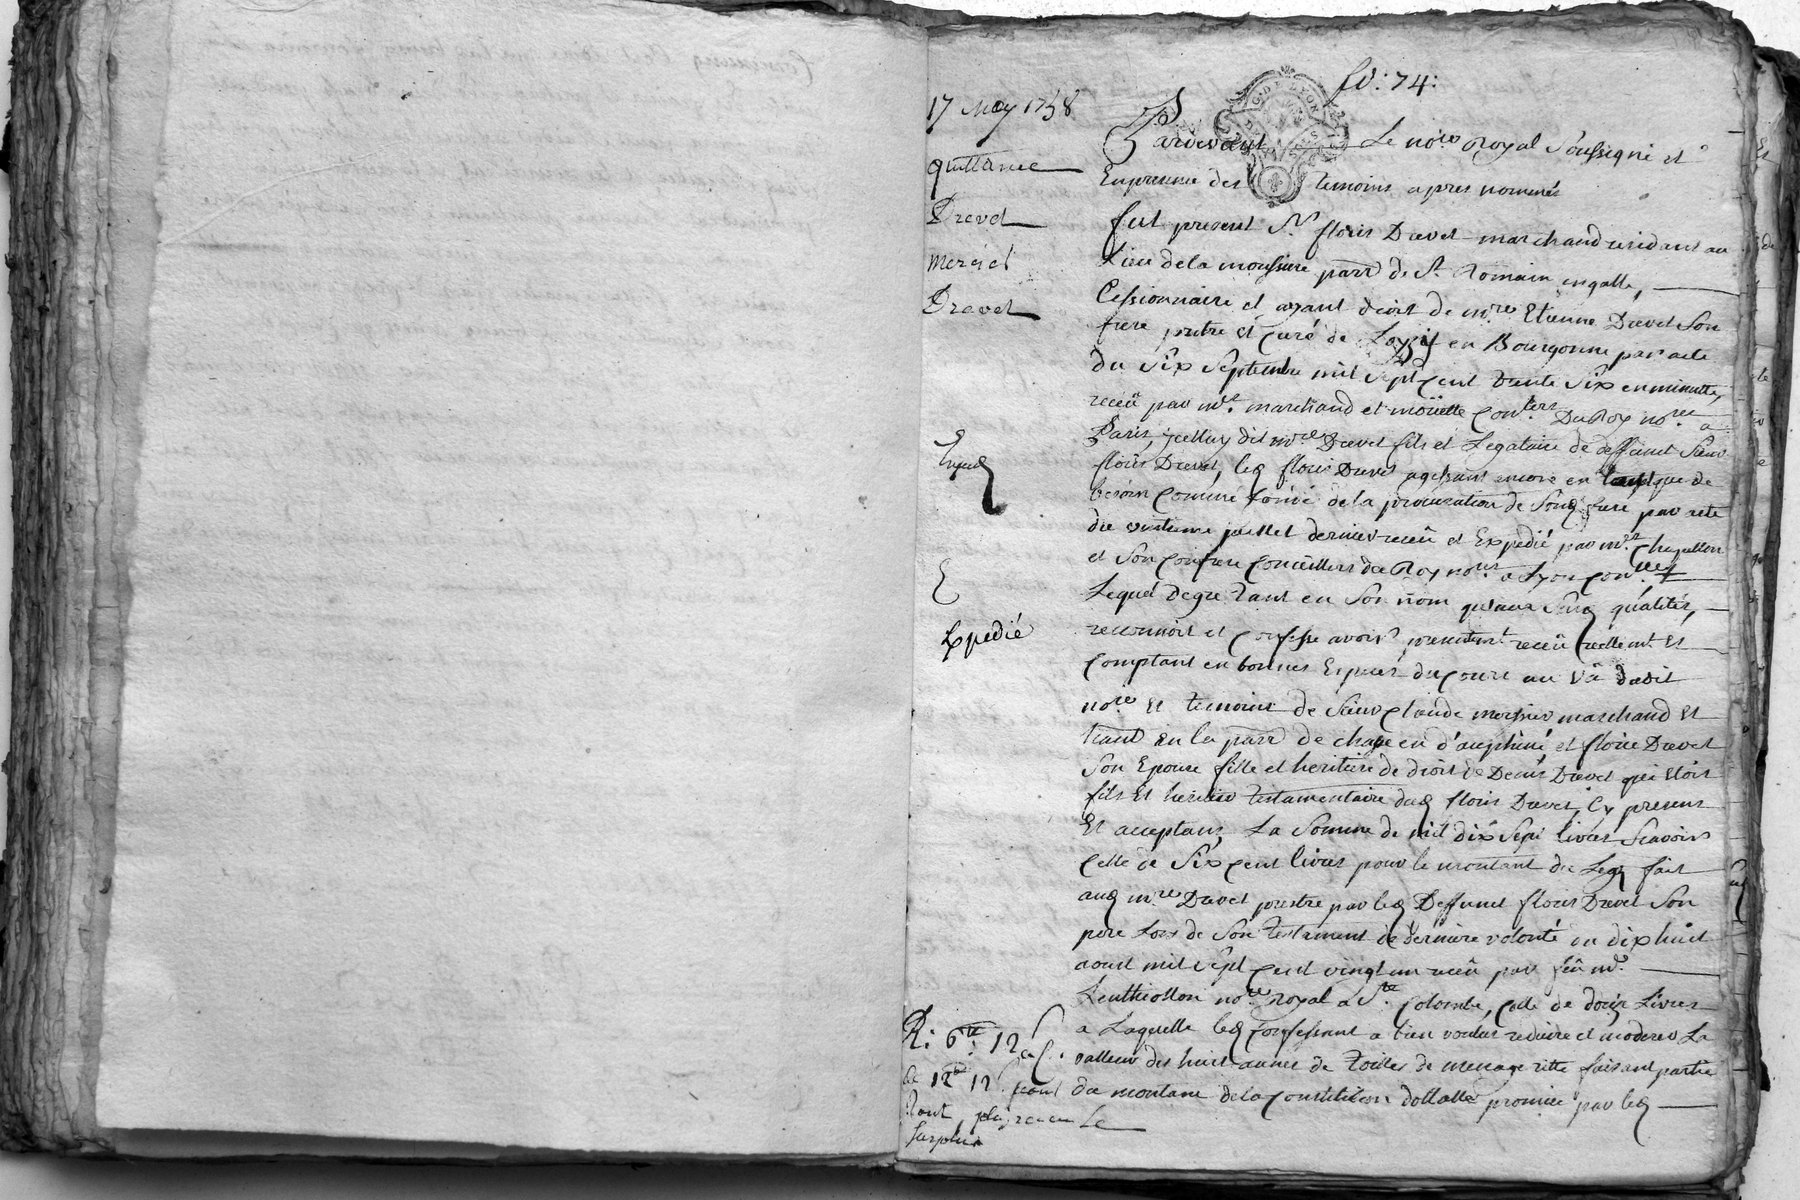 fo: 74:
17 May 1758
quittance
Drevet
Mercier
Drevet
Exped
E
Expedié
R: 6tt 12s
de 12tt 12s pour
tant plus receu le
surplus
G. DE LYON
Pardevant Le nore Royal Soussigné et
En presence des temoins apres nommés
fut present Sr. floris Drevet marchand residant au
Lieu de la moussiere parr de St. Romain en galle,
Cessionnaire et ayant droit de mre Etienne Drevet Son
frere prêtre et Curé de Loysy en Bourgonne par acte
du Six Septembre mil Sept Cent trente Six en minutte,
receû par mes. marchand et moüette Con.ers Du Roy no.res a
Paris, jcelluy dit mre Drevet fils et Legataire de deffunt Sieur
floris Drevet, led floris Drevet agissant encore en tant que de
besoin Comme fondé de la procuration de Sond frere par acte
du vintieme juillet dernier receû et Expedié par me. Chapellon
et Son Confrere Conseillers du Roy nores a Lyon
Lequel de gre tant en Son nom qu'aux Susd qualités,
reconnoit et Confesse avoir presentemt receû reellemt Et
Comptant en bonnes Especes du Cours au vû dudit
nore Et temoins de Sieur Claude mercier marchand Et
en la parr de en d'auphiné et florie Drevet
Son Epouse fille et heritiere de droit de Denis Drevet qui Etoit
fils Et heritier testamentaire dud floris Drevet, Cy presens
Et acceptans, La Somme de mil dix Sept livres Scavoir
Celle de Six Cent livres pour le montant du Legs fait
aud mre Drevet prestre par led Deffunct floris Drevet Son
pere Lors de Son testament de derniere volonté du dix huit
aoust mil Sept Cent vingt un receû par feû me.
Leuthiollon nore royal a Ste. Colombe, Celle de douze Livres
a Laquelle led Confessant a bien voulu reduire et moderer La
valleur des huit aunes de toiles de menage ritte faisant partie
du montant de la Constitution dottalle promise par led